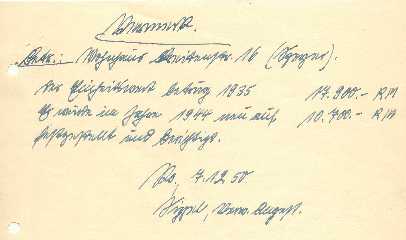 Vermerk.
Betr.: Wohnhaus Breitenstr. 16 (Speyer).
Der Einheitswert betrug 1935 17.900.- RM
Er wurde im Jahre 1944 neu auf 10.700.- RM
festgestellt und berichtigt.
7.12.50.
Angest.